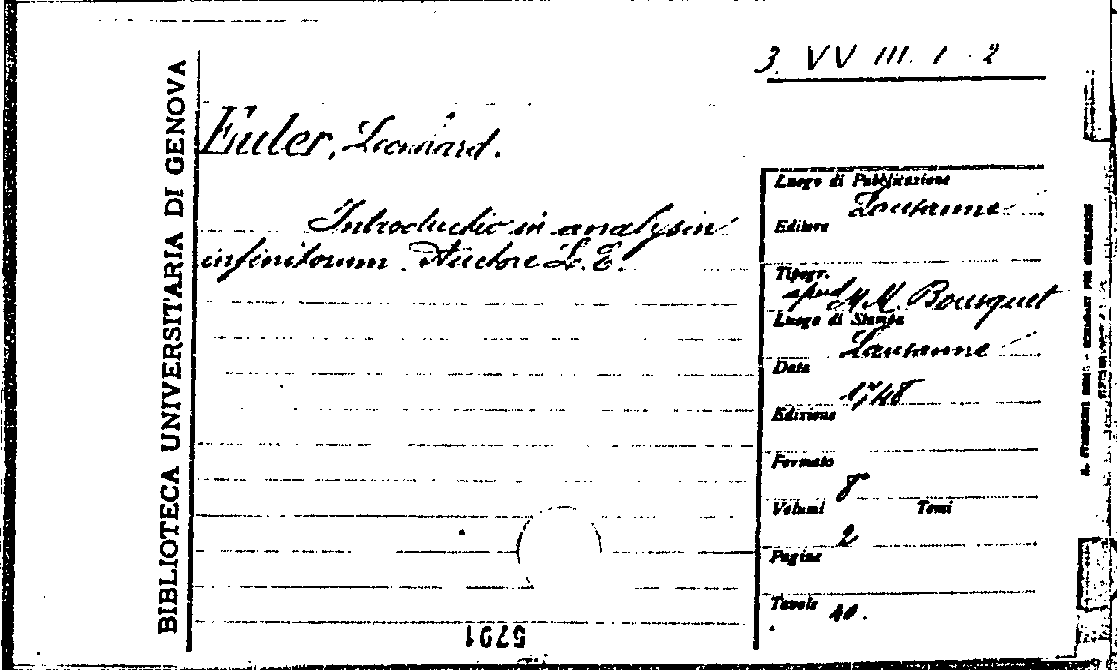 3. VV III. 1 - 2
BIBLIOTECA UNIVERSITARIA DI GENOVA
Euler, Leonhard.
Introductio in analysin
infinitorum. Auctore L. E.
Luogo di Pubblicazione
Lausanne
Editore
Tipogr.
apud M. M. Bousquet
Luogo di Stampa
Lausanne
Data
1748
Edizione
Formato
8
Volumi Tomi
2
Pagine
Tavole 40.
5701